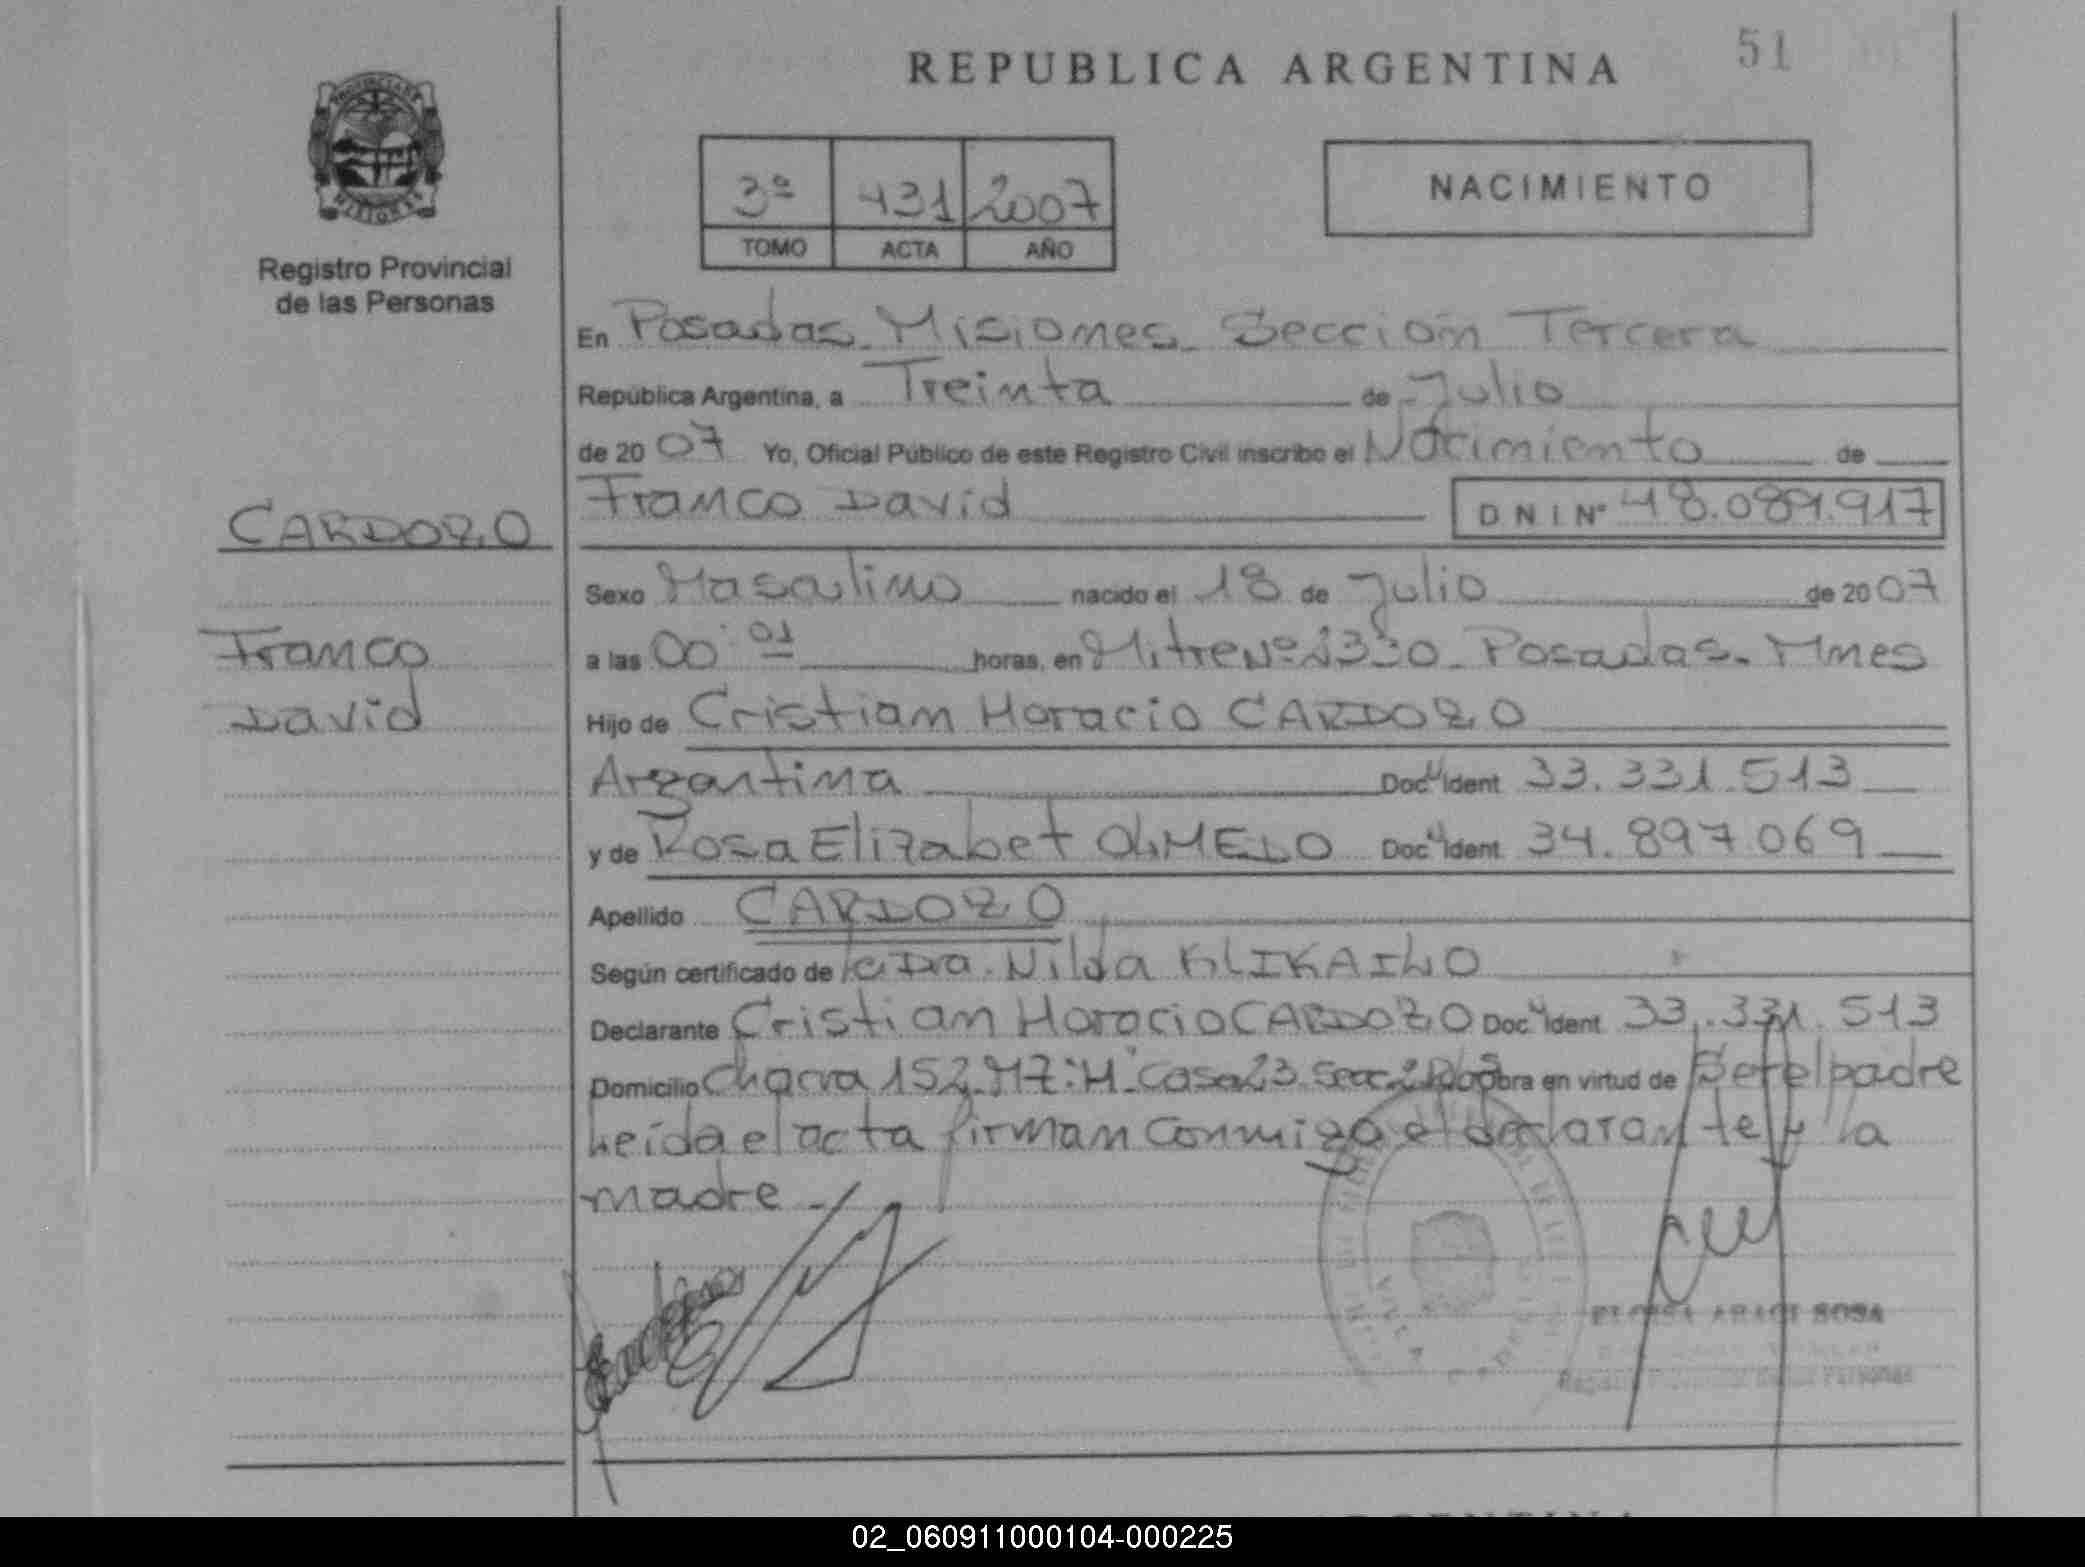 REPUBLICA ARGENTINA 51
PROVINCIA DE MISIONES
Registro Provincial
de las Personas
3º 431 2007
TOMO ACTA AÑO
NACIMIENTO
En Posadas Misiones Sección Tercera
República Argentina, a Treinta de Julio
de 2007 Yo, Oficial Público de este Registro Civil inscribo el Nacimiento de
CARDOZO
Franco David D N I Nº 48.089.917
Sexo Masculino nacido el 18 de Julio de 2007
Franco
a las 00:01 horas, en Mitre Nº 2330 Posadas Mnes
David
Hijo de Cristian Horacio CARDOZO
Argentina Doc. Ident 33.331.513
y de Rosa Elizabet OLMEDO Doc. Ident 34.897.069
Apellido CARDOZO
Según certificado de la Dra. Nilda KLIKAILO
Declarante Cristian Horacio CARDOZO Doc. Ident 33.331.513
Domicilio Chacra 152 MZ: H Casa 23 obra en virtud de Ser el padre
Leída el acta firman conmigo el declarante y la
madre
ELOISA ARACI SOSA
Personas
02_060911000104-000225